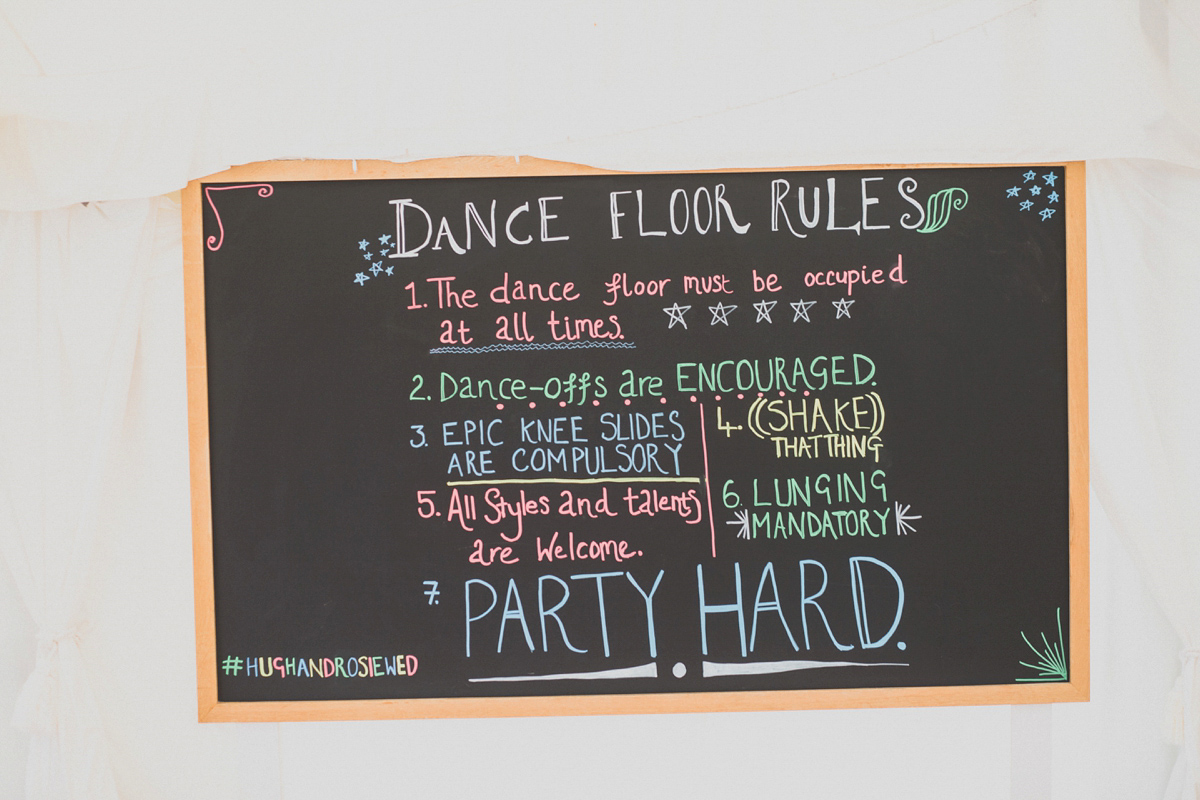 DANCE FLOOR RULES
1. The dance floor must be occupied
at all times.
2. Dance-offs are ENCOURAGED.
3. EPIC KNEE SLIDES
ARE COMPULSORY
4. ((SHAKE))
THAT THING
5. All Styles and talents
are Welcome.
6. LUNGING
MANDATORY
7. PARTY HARD.
#HUGHANDROSIEWED